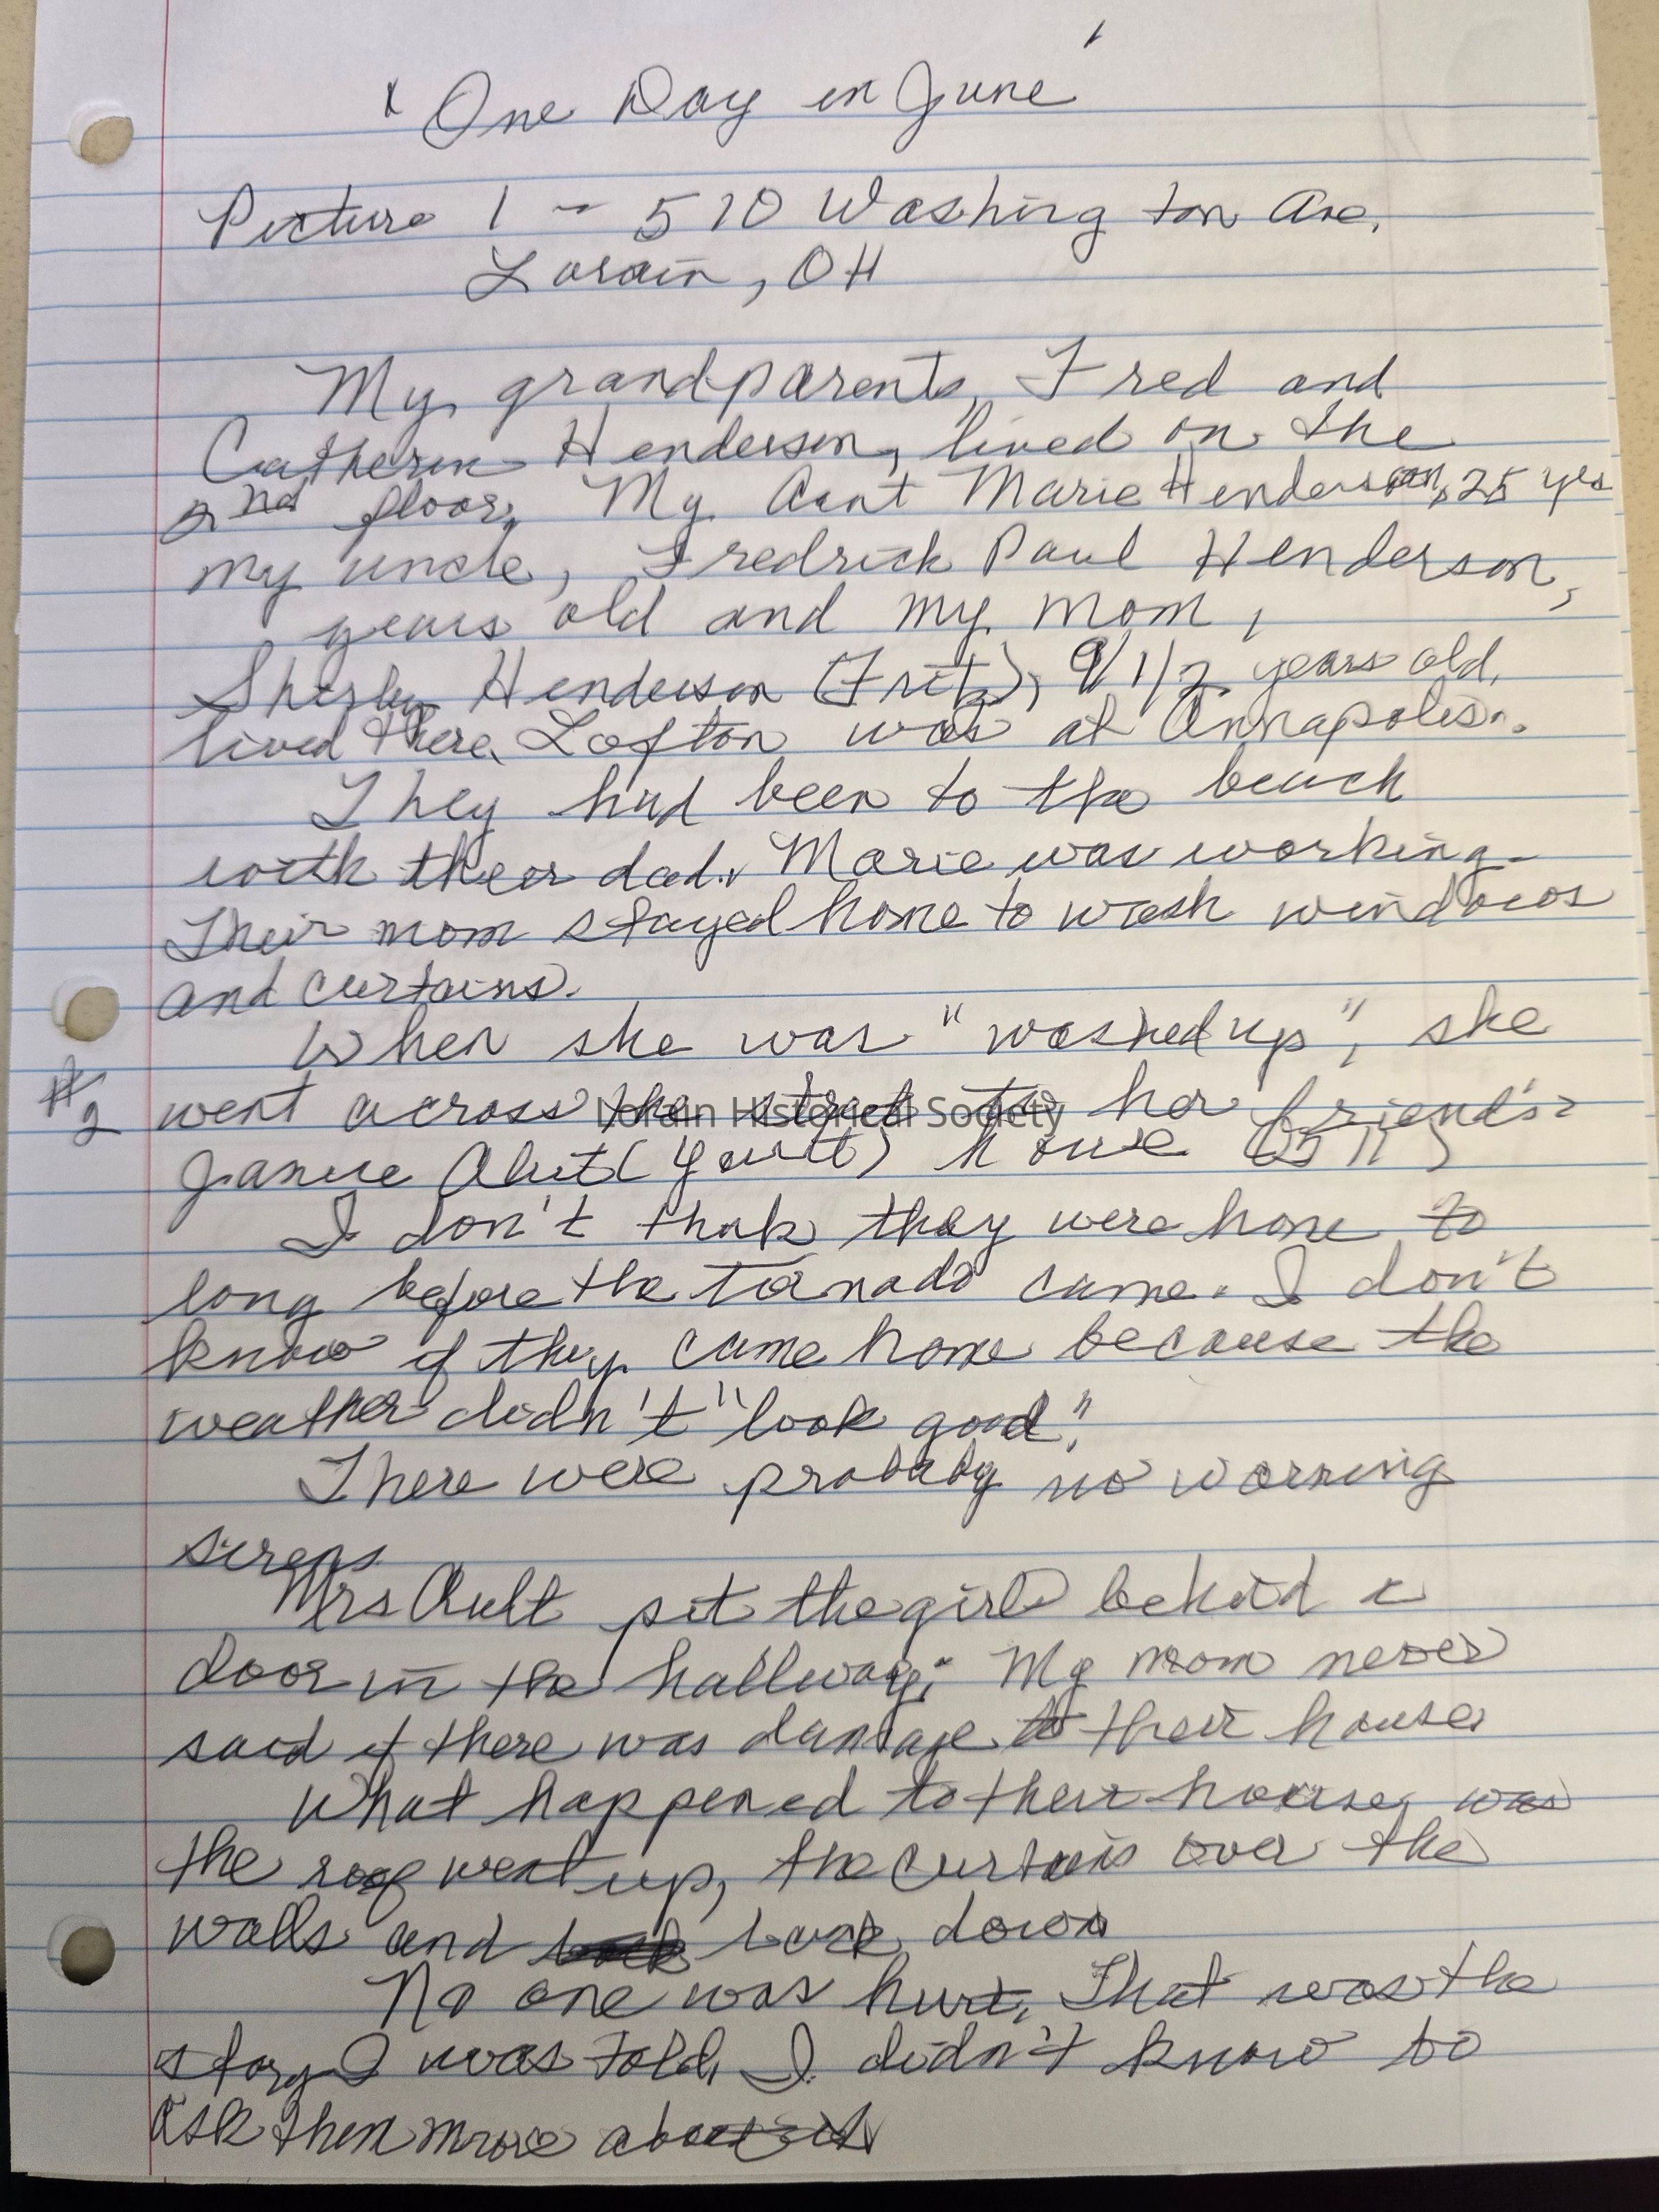 "One Day in June"
Picture 1 - 510 Washington Ave,
Lorain, OH
My grandparents, Fred and
Catherine Henderson, lived on the
2nd floor. My Aunt Marie Henderson, 25 yrs
my uncle, Fredrick Paul Henderson,
years old and my mom,
Shirley Henderson (Fritz), 9 1/2 years old,
lived there. Lofton was at Annapolis.
They had been to the beach
with their dad. Marie was working.
Their mom stayed home to wash windows
and curtains.
When she was "washed up", she
#2 went across the street to her friend's
Lorain Historical Society
Janice house
I don't think they were home to
long before the tornado came. I don't
know if they came home because the
weather didn't "look good".
There were probably no warning
sirens
Mrs Ault put the girls behind a
door in the hallway. My mom never
said if there was damage to their house
What happened to their house, was
the roof went up, the curtains over the
walls and back down
No one was hurt. That was the
story I was told, I didn't know to
ask them more about it